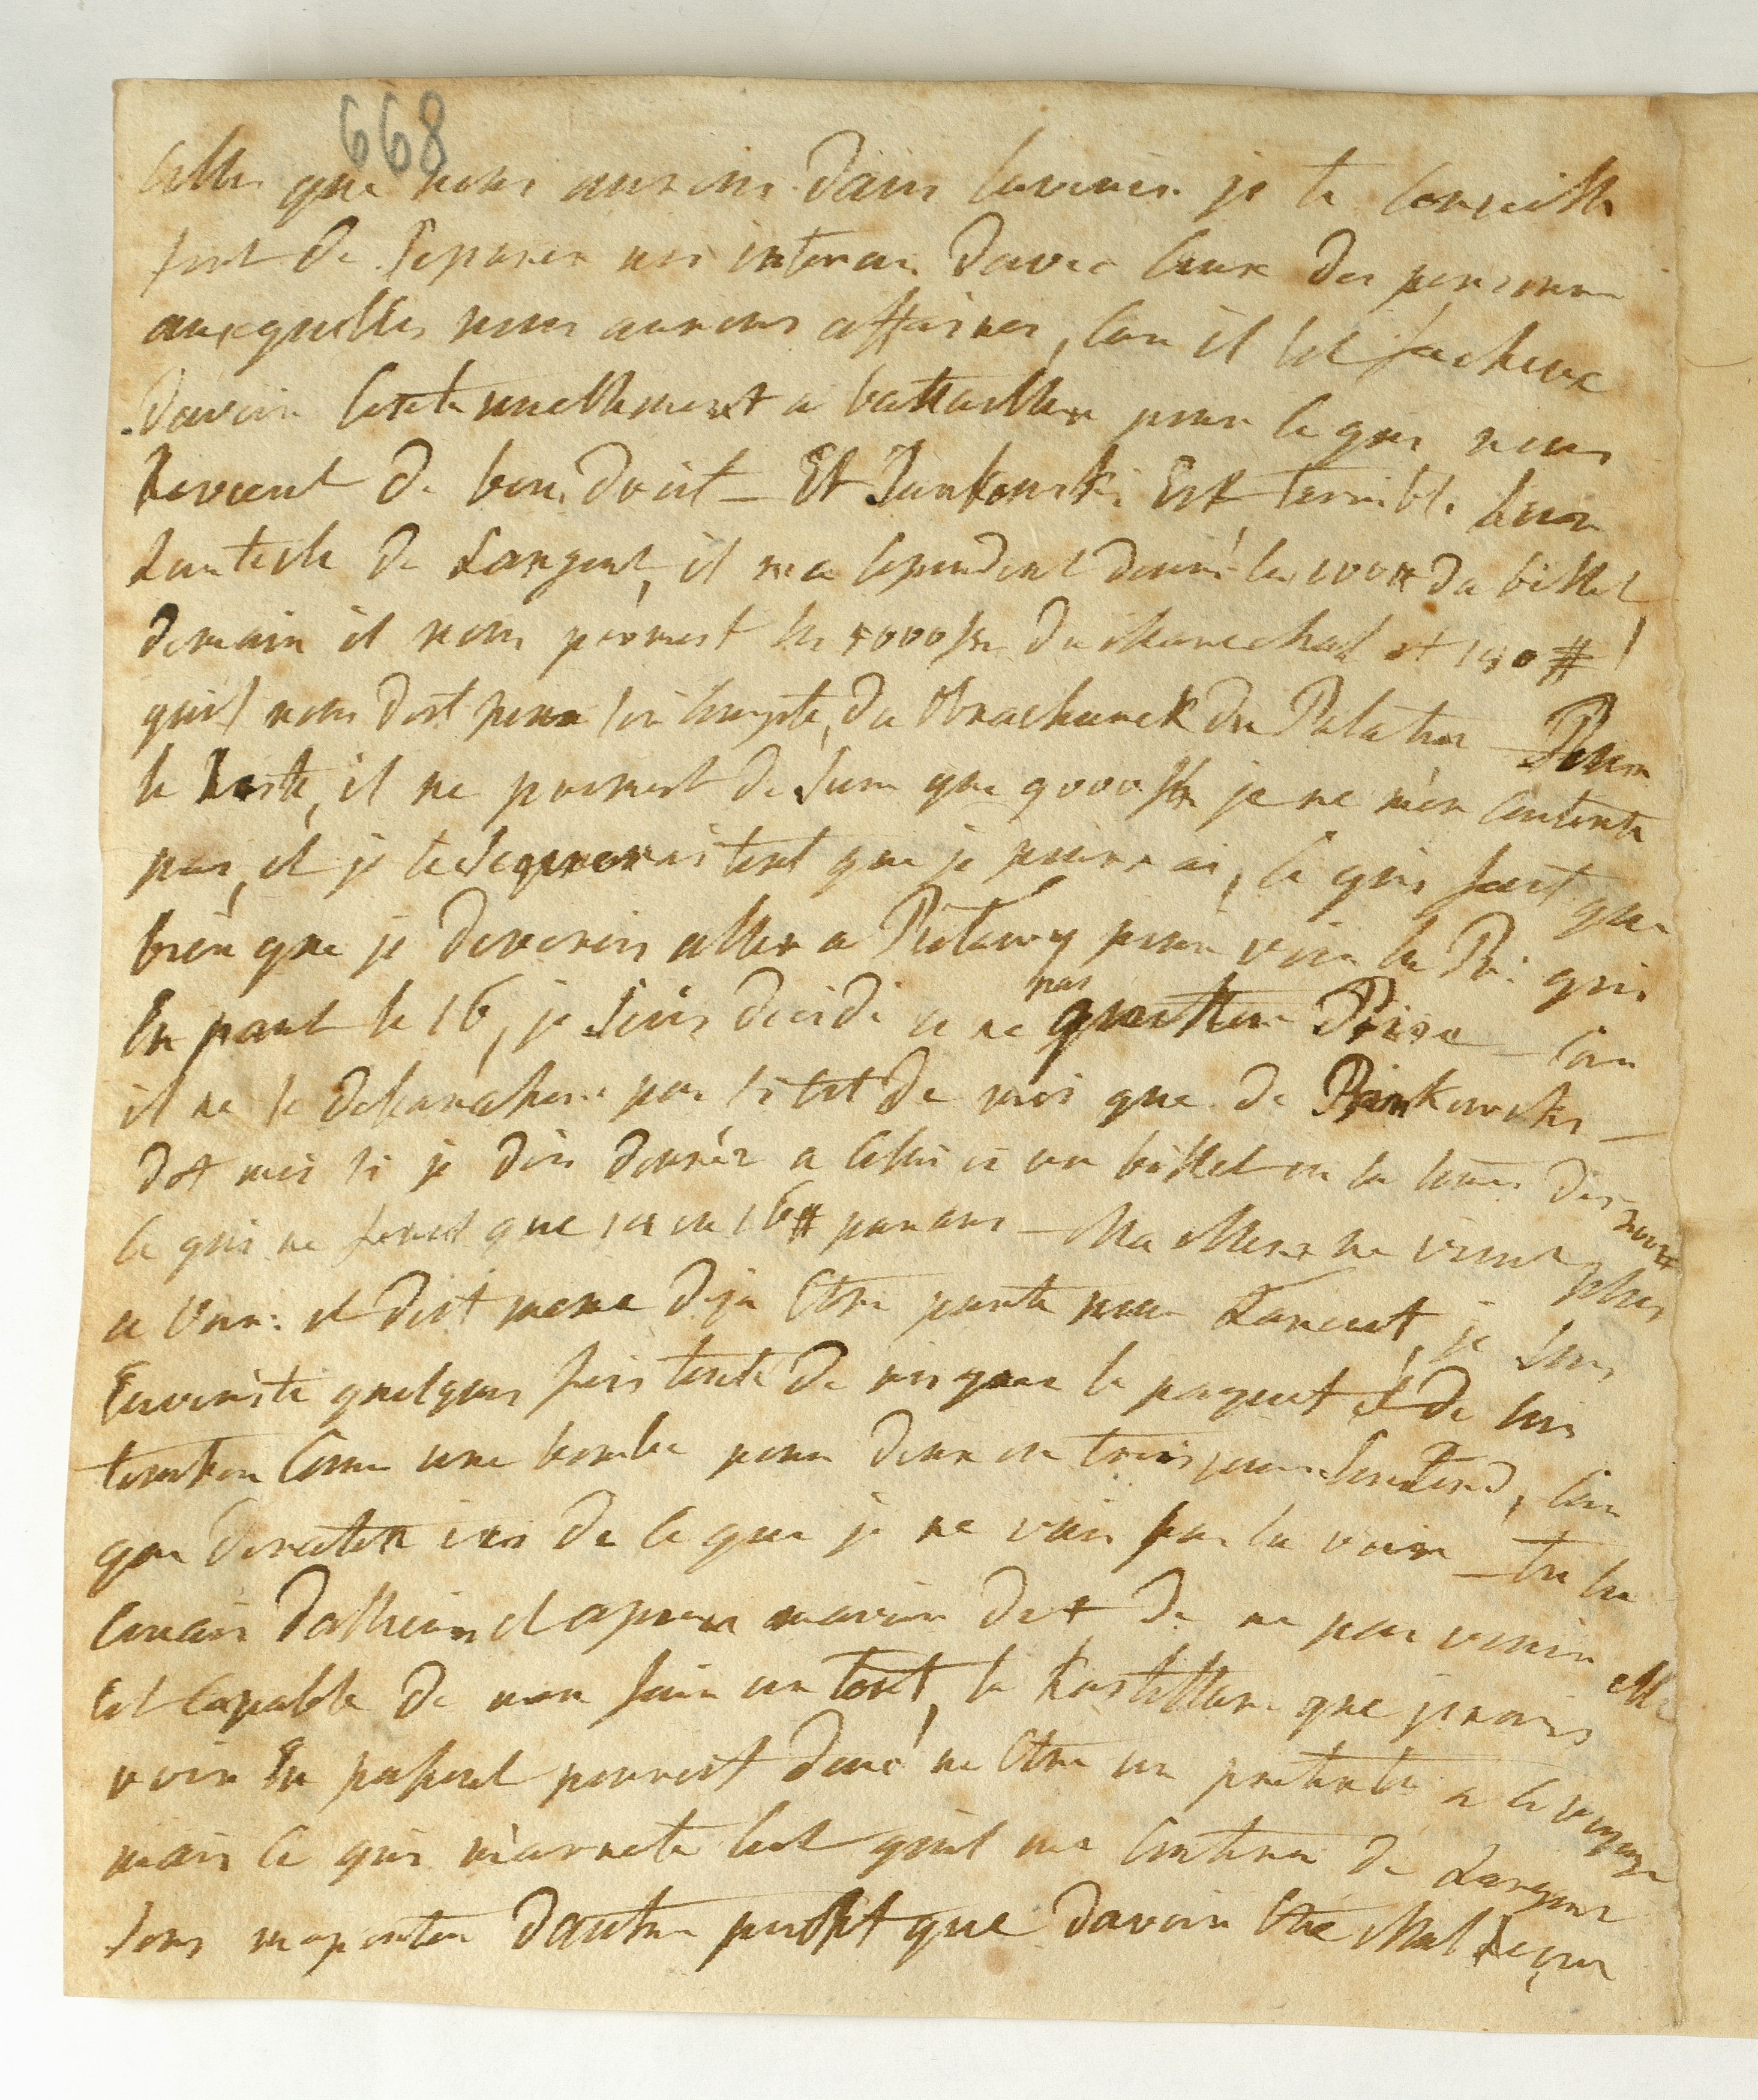 668
Celles que nous aurons dans lavenir je te conseille
fort de separer nos interais davec ceux des personne
auxquelles nous aurons affaires, car il est facheux
davoir eternellement a battailler pour ce qui nous
revient de bon droit — Et Junkouski Est terrible sur
larticle de Largent, il ma cependent donné les 100# du billet
demain il nous promest les 4000 du Marechal et 140 #
quil nous doit pour le compte, du Obrachunek du Palatin — Pour
le Reste, il ne promest de sure que 9000 je ne m'en contente
pas, et je tant que je pourrai, ce qui fait que
bien que je deverois aller a Pulawy pour voir le Pri: qui
En part le 16, je suis decidé a ne pas quitter Prise — car
il ne se pas si tot de moi que de Binkowski —
dit moi si je dois donnér a celui ci un billet ou la some des 200#
ce qui ne feroit que 14 ou 16# par ans — Ma Mere ne vient plus
a Var: et doit meme deja Etre partie pour Lancut, je suis
Enverité quelques fois tenté de risquer le paquet et de lui
tomber Come une bombe pour deux ou trois jours sentend, car
que diratelle ici de ce que je ne vais pas la voir — tu la
conais dailleurs et apres mavoir dit de ne pas venir elle
Est capable de men faire un tort, la Kastellane que jirois
voir En passent pourroit donc me Etre un pretexte a ce voyage
mais ce qui m'arrete cest quil me coutera de Largent
sans maporter dautre profit que davoir Eté Mal Reçue